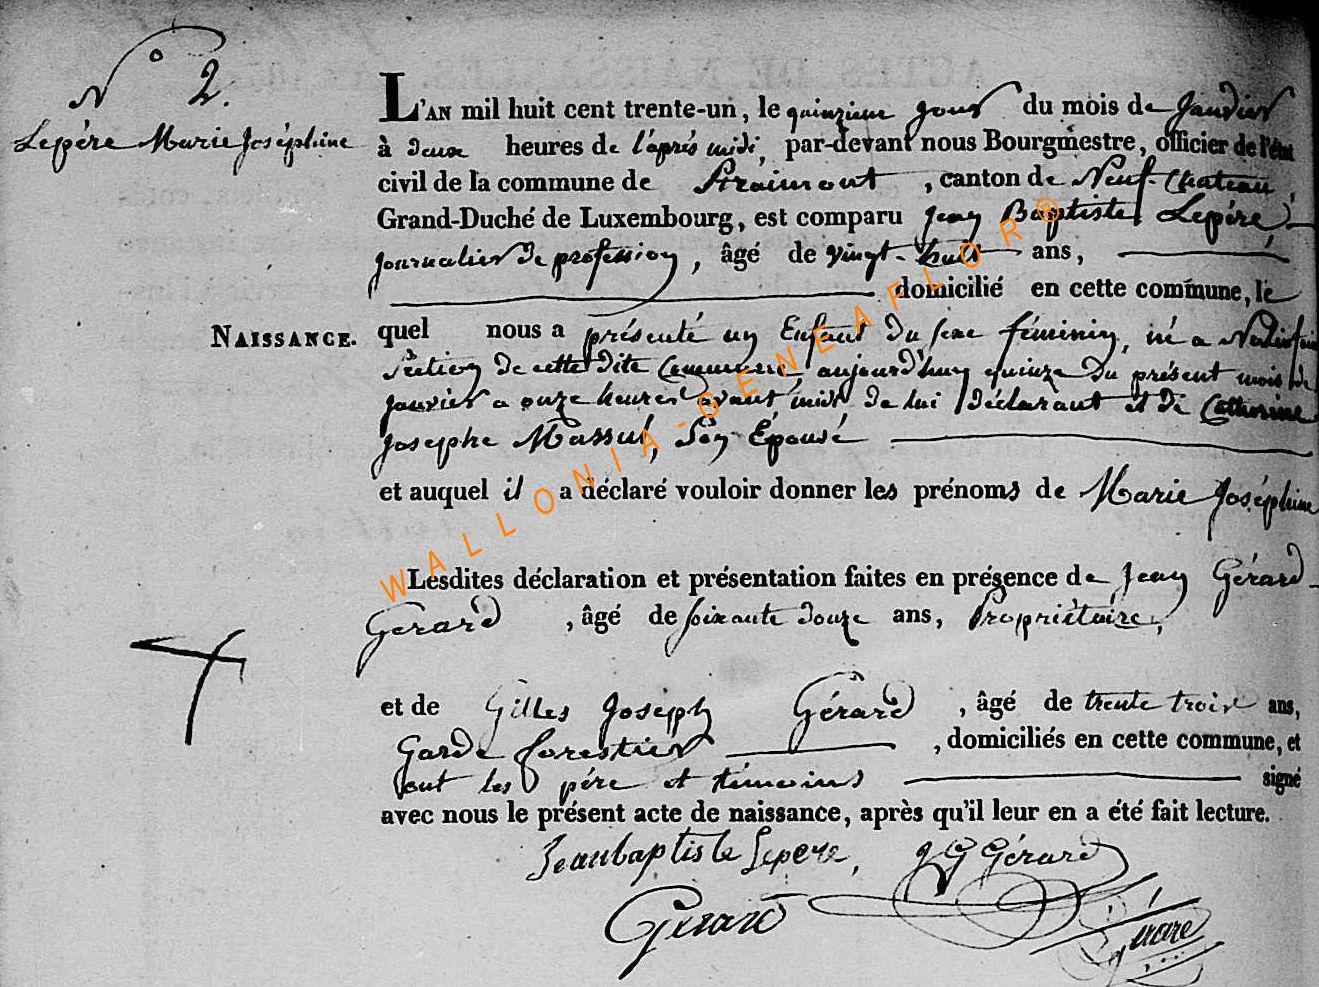 N° 2.
Lepère Marie Joséphine
L'AN mil huit cent trente-un, le quinzième jour du mois de Janvier
à deux heures de l'après midi, par-devant nous Bourgmestre, officier de l'état
civil de la commune de Straimont, canton de Neuf-Chateau,
Grand-Duché de Luxembourg, est comparu Jean Baptiste Lepère
journalier de profession, âgé de vingt-huit ans,
domicilié en cette commune, le
NAISSANCE.
quel nous a présenté un Enfant du sexe féminin, né a
Section de cette dite Commune aujourd'huy quinze du présent mois de
janvier a onze heures avant midi de lui déclarant et de Catherine
Josephe Massul, Son Épouse
et auquel il a déclaré vouloir donner les prénoms de Marie Joséphine
Lesdites déclaration et présentation faites en présence de Jean Gérard
Gerard, âgé de soixante douze ans, Propriétaire,
et de Gilles Joseph Gérard, âgé de trente trois ans,
Garde forestier, domiciliés en cette commune, et
ont les père et témoins signé
avec nous le présent acte de naissance, après qu'il leur en a été fait lecture.
Jeanbaptiste Lepere, JG Gérard
Gerard
WALLONIA-GENEAFLOR®